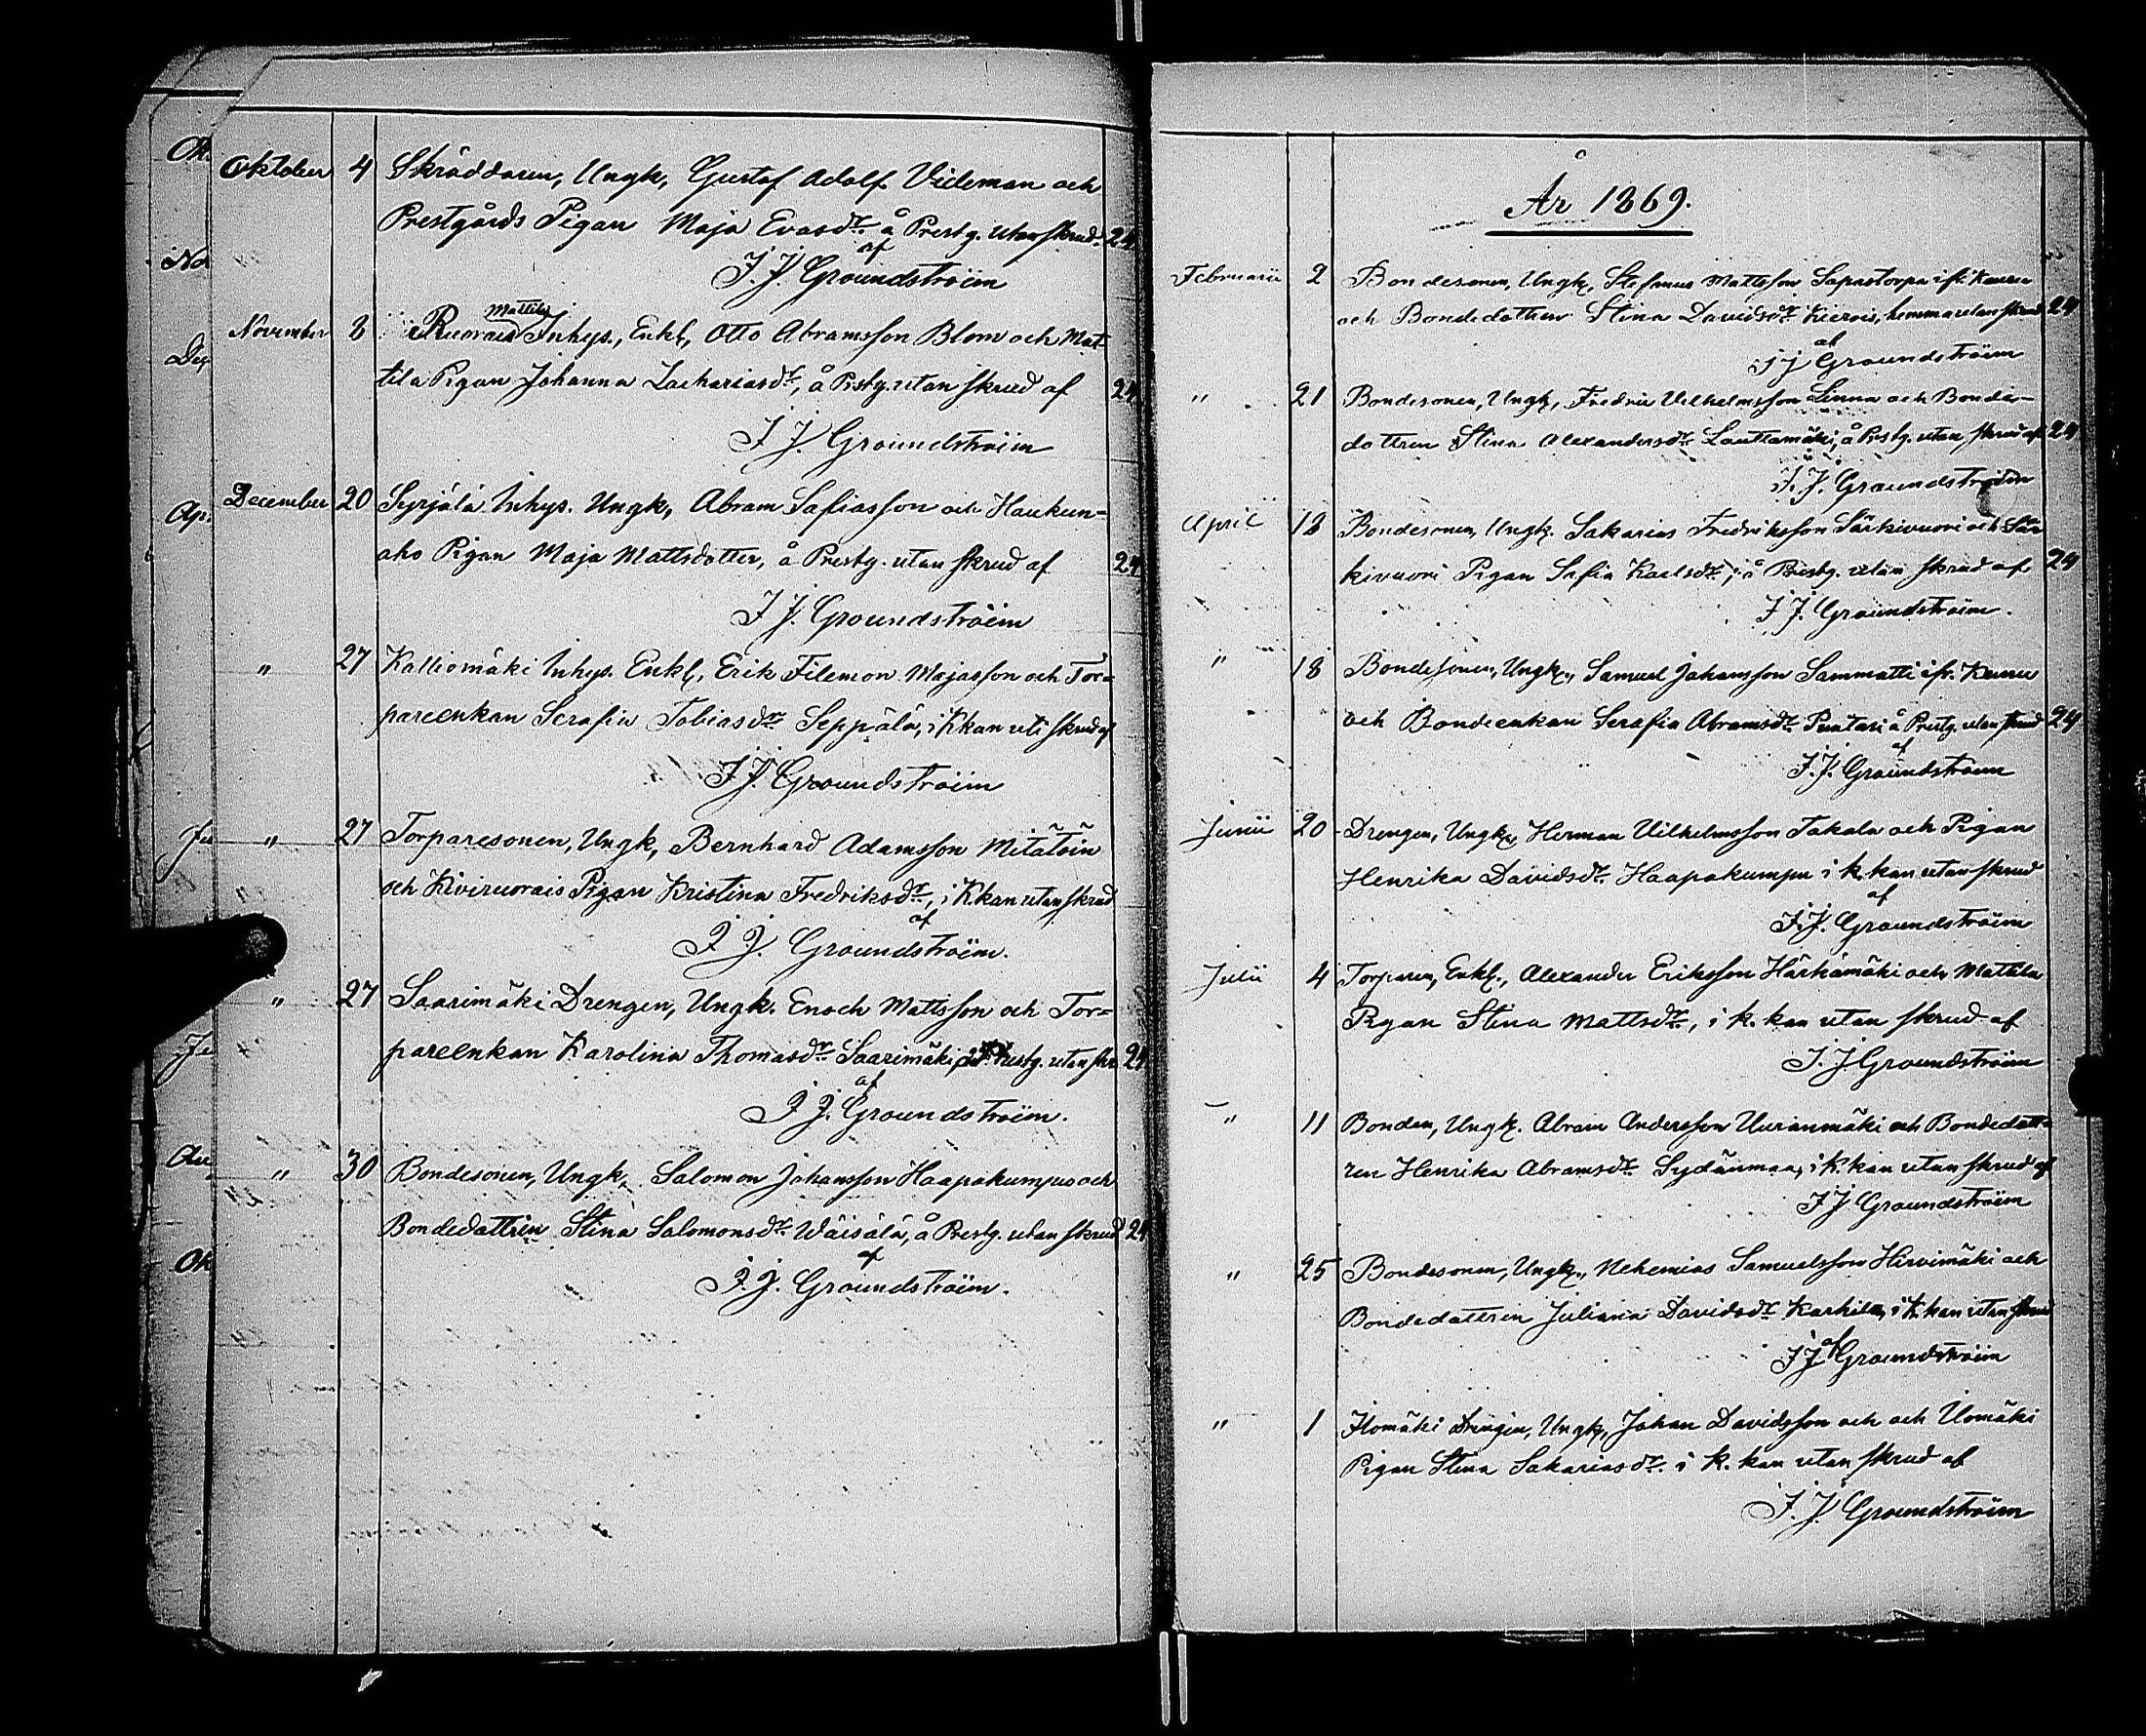 Oktober 4 Skräddaren, Ungk, Gustaf Adolf Videman och
Prestgårds Pigan Maja Evasdr. å Prestg. utan skrud 24
af
J. J. Groundströim
Mattila
November 8 Ruorais Inhys., Enkl, Otto Abramsson Blom och Mat-
tila Pigan Johanna Zachariasdr, å Prstg. utan skrud af 24
J J. Groundströim
December 20 Syrjälä Inhys. Ungk, Abram Safiasson och Haukun-
aho Pigan Maja Mattsdotter, å Prestg. utan skrud af 24
J J. Groundströim
" 27 Kalliomäki Inhys. Enkl, Erik Filemon Majasson och Tor=
pareenkan Serafia Tobiasdr Seppälä, i Kkan uti skrud af
J J. Groundströim
" 27 Torparesonen, Ungk, Bernhard Adamsson Mitätöin
och Kiviruorais Pigan Kristina Fredriksdr, i Kkan utan skrud
af
J J. Groundströim.
" 27 Saarimäki Drengen, Ungk. Enoch Mattsson och Tor=
pareenkan Karolina Thomasdr Saarimäki, Prestg. utan skr 24
af
J J. Groundströim.
" 30 Bondesonen, Ungk, Salomon Johansson Haapakumpu och
Bondedattren Stina Salomonsdr. Wäisälä, å Prestg. utan skrud 24
af
J. J. Groundströim.
År 1869.
Februarii 2 Bondesonen, Ungk, Stefanus Mattsson Sapastorpa ifr.
och Bondedottren Stina Davidsdr. hemma utan skrud 24
af
J J Groundströim
" 21 Bondesonen, Ungk, Fredric Vilhelmsson Linna och Bonde-
dottren Stina Alexandersdr. Lauttamäki, å Prestg. utan skrud af 24
J. J. Groundströim
April 18 Bondesonen, Ungk. Sakarias Fredriksson Särkivuori och Sär
kivuori Pigan Safia Karlsdr., å Prestg. utan skrud af 24
J J. Groundströim.
" 18 Bondesonen, Ungk., Samuel Johansson Sammatti ifr.
och Bondeenkan Serafia Abramsdr. å Prestg. utan skrud 24
af
J. J. Groundströim
Junii 20 Drengen, Ungk, Herman Vilhelmsson Takala och Pigan
Henrika Davidsdr. Haapakumpu i k. kan utan skrud
af
J. J. Groundströim
Julii 4 Torparen, Enkl., Alexander Eriksson Härkämäki och Mattila
Pigan Stina Mattsdr., i k. kan utan skrud af
J. J Groundströim
" 11 Bonden, Ungk. Abram Andersson Uuranmäki och Bondedatt=
ren Henrika Abramsdr. Sydänmaa, i K. kan utan skrud af
J J Groundströim
" 25 Bondesonen, Ungk., Nehemias Samuelsson Hirvimäki och
Bondedattren Juliana Davidsdr. Karhila, i K. kan utan skrud
af
J J Groundströim
" 1 Ilomäki Drengen, Ungk, Johan Davidsson och och Ilomäki
Pigan Stina Sakariasdr. i k. kan utan skrud af
J. J. Groundströim